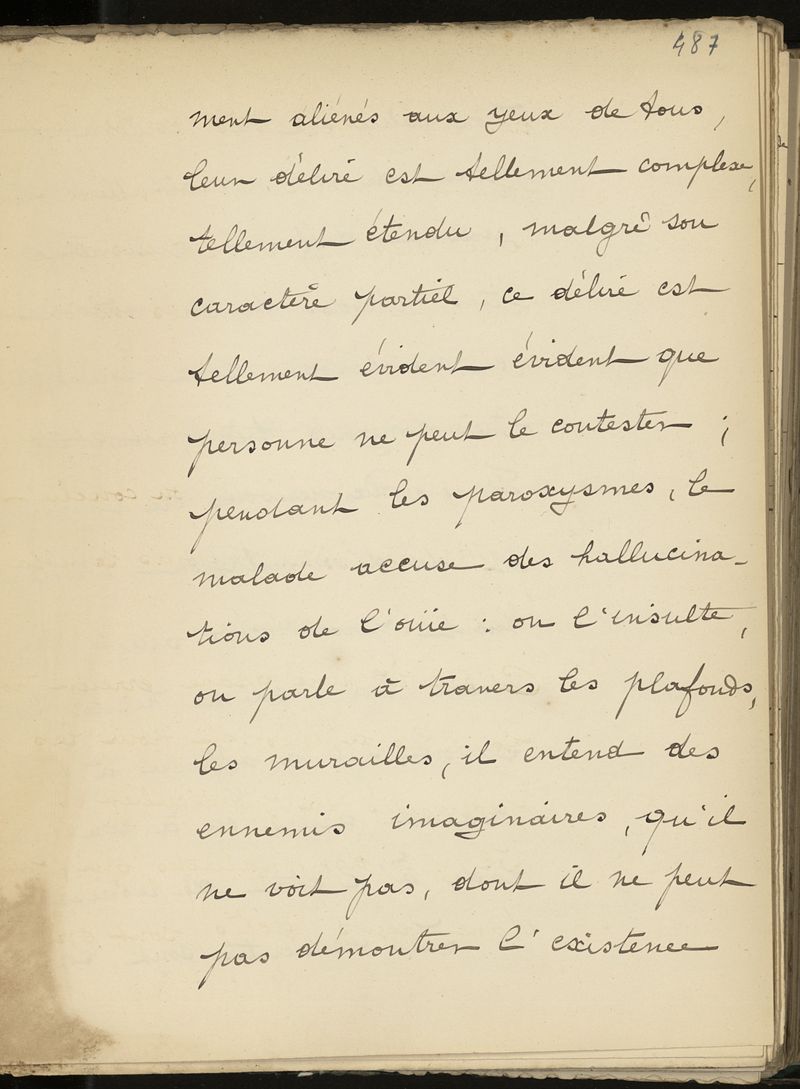 487
ment aliénés aux yeux de tous,
leur délire est tellement complexe,
tellement étendu, malgré son
caractère partiel, ce délire est
tellement évident évident que
personne ne peut le contester ;
pendant les paroxysmes, le
malade accuse des hallucina-
tions de l'ouïe : on l'insulte,
on parle à travers les plafonds,
les murailles, il entend des
ennemis imaginaires, qu'il
ne voit pas, dont il ne peut
pas démontrer l'existence